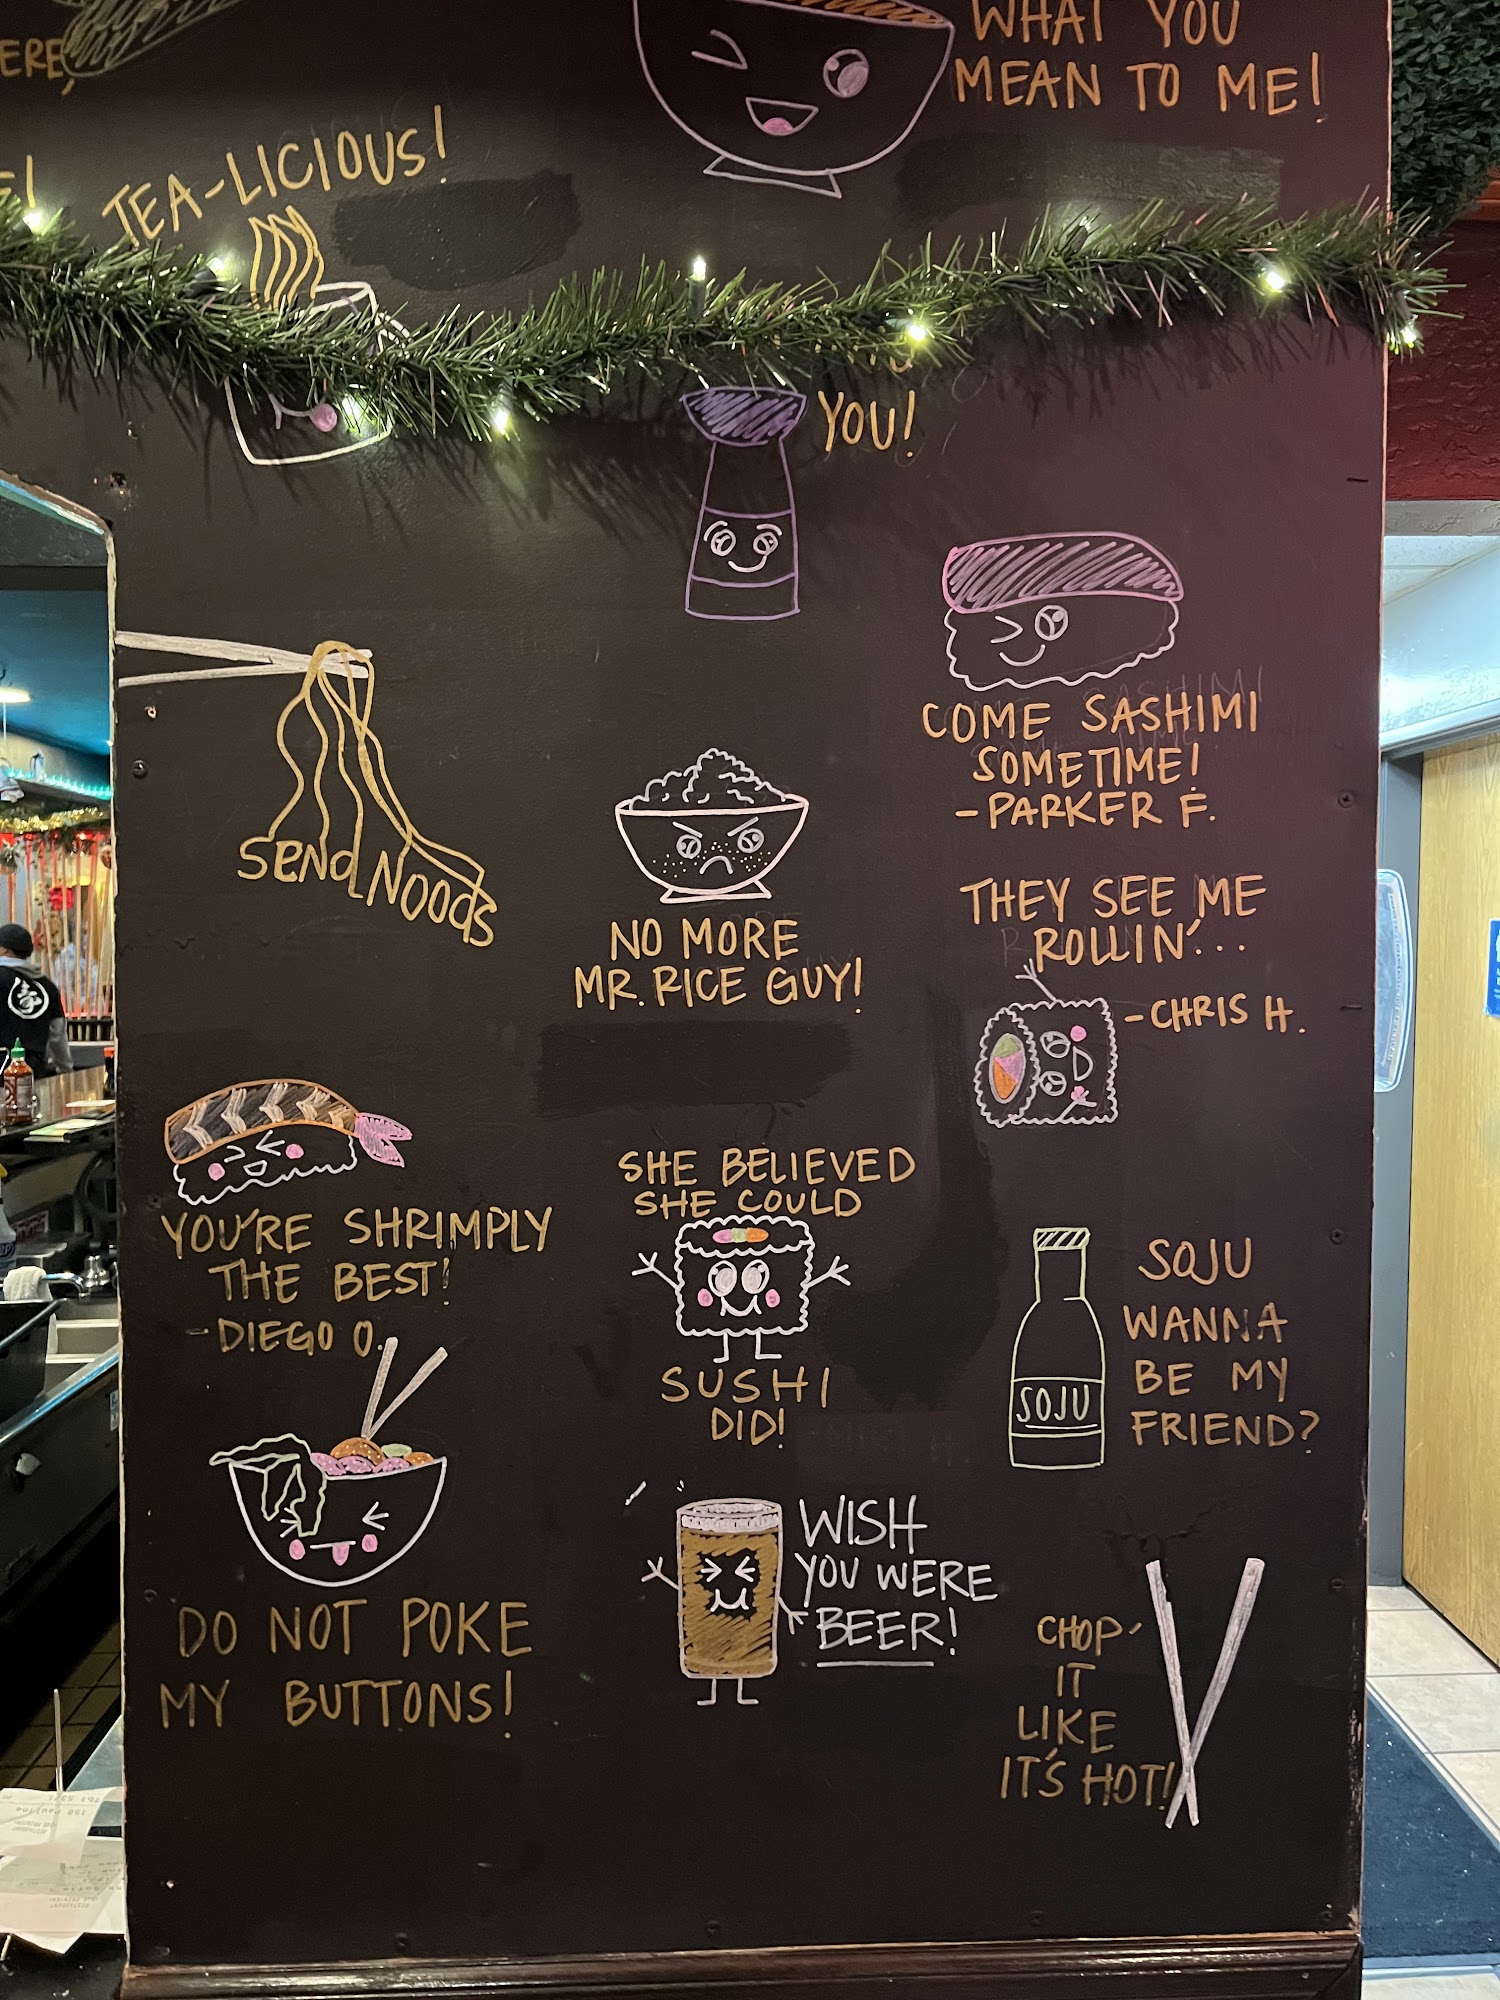 WHAT YOU
MEAN TO ME!
TEA-LICIOUS!
YOU!
COME SASHIMI
SOMETIME!
-PARKER F.
SEND NOODS
NO MORE
MR. RICE GUY!
THEY SEE ME
ROLLIN'...
-CHRIS H.
YOU'RE SHRIMPLY
THE BEST!
-DIEGO O.
SHE BELIEVED
SHE COULD
SUSHI
DID!
SOJU
WANNA
BE MY
FRIEND?
SOJU
DO NOT POKE
MY BUTTONS!
WISH
YOU WERE
BEER!
CHOP-
IT
LIKE
IT'S HOT!